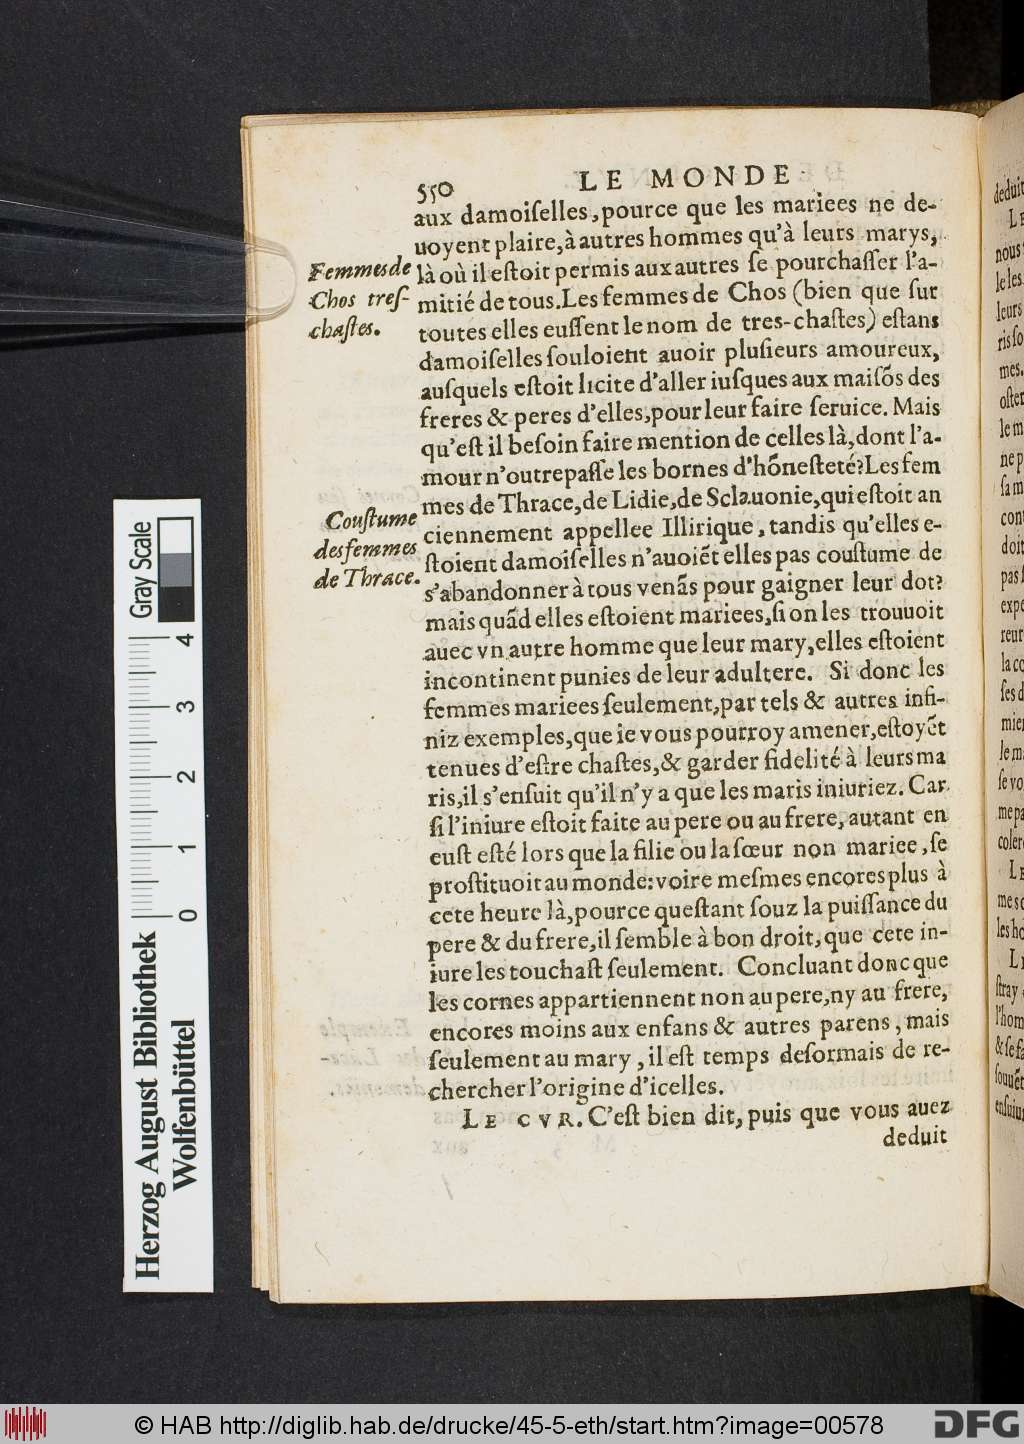 550 LE MONDE
aux damoiſelles, pource que les mariees ne de-
uoyent plaire, à autres hommes qu'à leurs marys,
là où il eſtoit permis aux autres ſe pourchaſſer l'a-
mitié de tous. Les femmes de Chos (bien que ſur
toutes elles euſſent le nom de tres-chaſtes) eſtans
damoiſelles ſouloient auoir pluſieurs amoureux,
auſquels eſtoit licite d'aller iuſques aux maiſõs des
freres & peres d'elles, pour leur faire ſeruice. Mais
qu'eſt il beſoin faire mention de celles là, dont l'a-
mour n'outrepaſſe les bornes d'hõneſteté? Les fem
mes de Thrace, de Lidie, de Sclauonie, qui eſtoit an
ciennement appellee Illirique, tandis qu'elles e-
ſtoient damoiſelles n'auoiẽt elles pas couſtume de
s'abandonner à tous venãs pour gaigner leur dot?
mais quãd elles eſtoient mariees, ſi on les trouuoit
auec vn autre homme que leur mary, elles eſtoient
incontinent punies de leur adultere. Si donc les
femmes mariees ſeulement, par tels & autres infi-
niz exemples, que ie vous pourroy amener, eſtoyẽt
tenues d'eſtre chaſtes, & garder fidelité à leurs ma
ris, il s'enſuit qu'il n'y a que les maris iniuriez. Car
ſi l'iniure eſtoit faite au pere ou au frere, autant en
euſt eſté lors que la fille ou la ſœur non mariee, ſe
proſtituoit au monde: voire meſmes encores plus à
cete heure là, pource queſtant ſouz la puiſſance du
pere & du frere, il ſemble à bon droit, que cete in-
iure les touchaſt ſeulement. Concluant donc que
les cornes appartiennent non au pere, ny au frere,
encores moins aux enfans & autres parens, mais
ſeulement au mary, il eſt temps deſormais de re-
chercher l'origine d'icelles.
LE CVR. C'eſt bien dit, puis que vous auez
deduit
Femmes de
Chos treſ-
chaſtes.
Couſtume
des femmes
de Thrace.
Herzog August Bibliothek
Wolfenbüttel
0 1 2 3 4
Gray Scale
© HAB http://diglib.hab.de/drucke/45-5-eth/start.htm?image=00578
DFG